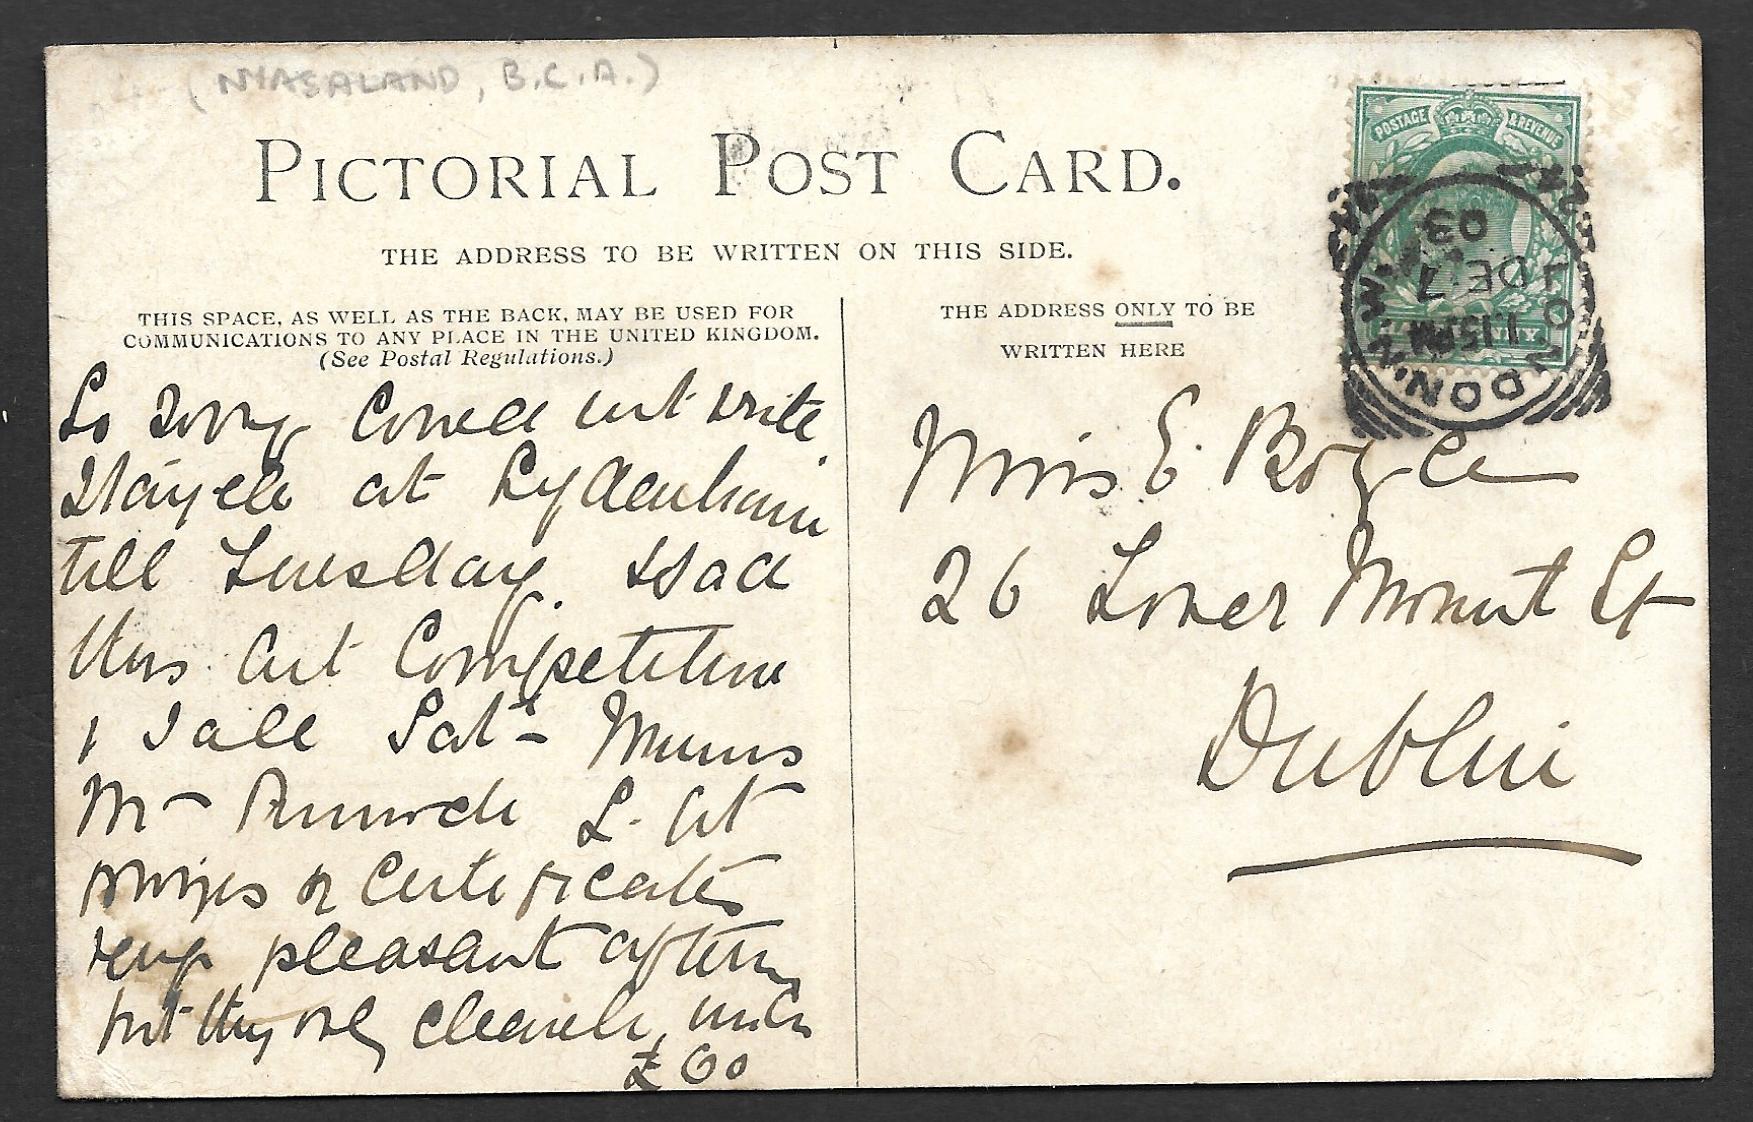 (NYASALAND, B.C.A.)
PICTORIAL POST CARD.
THE ADDRESS TO BE WRITTEN ON THIS SIDE.
THIS SPACE, AS WELL AS THE BACK, MAY BE USED FOR
COMMUNICATIONS TO ANY PLACE IN THE UNITED KINGDOM.
(See Postal Regulations.)
So sorry could not write
stayed at Sydenham
till Tuesday. Had
this Art Competition
& Sale Sat-
Mr L. Art
prizes or Certificates
very pleasant aftern
but they only cleared
£60
THE ADDRESS ONLY TO BE
WRITTEN HERE
Miss E. Boyle
26 Lower Mount St
Dublin
POSTAGE & REVENUE
LONDON. N.W.
1.15PM
DE 7
03